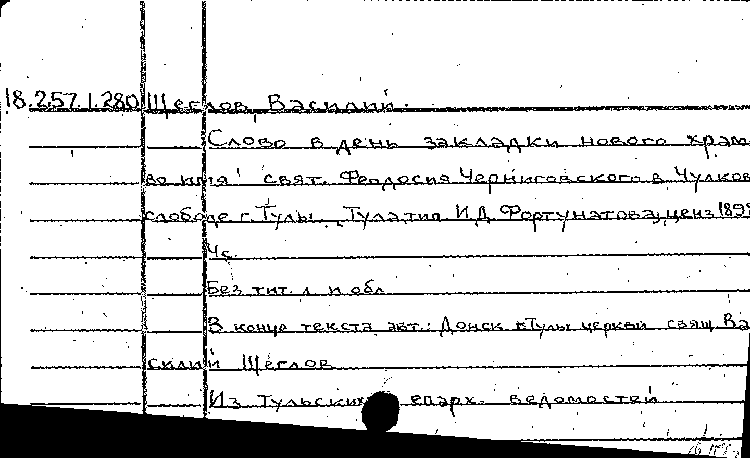 18.257.1.280 Щеглов, Василий.
Слово в день закладки нового храм
во имя свят. Феодосия Черниговского в Чулков
слободе г. Тулы. Тула, тип. И.Д. Фортунатова, ценз. 1899
4 с.
Без тит. л. и обл.
В конце текста авт.: Донск. г. Тулы церкви свящ. Ва
силий Щеглов
Из Тульских епарх. ведомостей